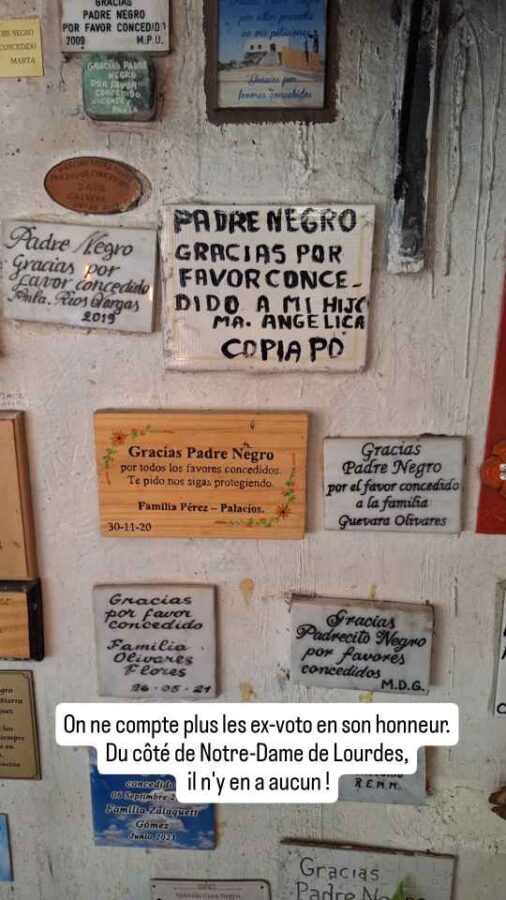 GRACIAS
PADRE NEGRO
POR FAVOR CONCEDIDO
2009 M.P.U.
NEGRO
CONCEDIDO
MARTA
GRACIAS PADRE
NEGRO
POR FAVOR
CONCEDIDO
en mis peticiones
Gracias por
favores concedidos
Padre Negro
Gracias por
favor concedido
Fmla. Rios Vargas
2019
PADRE NEGRO
GRACIAS POR
FAVOR CONCE-
DIDO A MI HIJO
MA. ANGELICA
COPIAPO
Gracias Padre Negro
por todos los favores concedidos.
Te pido nos sigas protegiendo.
Familia Pérez – Palacios.
30-11-20
Gracias
Padre Negro
por el favor concedido
a la familia
Guevara Olivares
Gracias
por favor
concedido
Familia
Olivares
Flores
26-05-21
Gracias
Padrecito Negro
por favores
concedidos
M.D.G.
On ne compte plus les ex-voto en son honneur.
Du côté de Notre-Dame de Lourdes,
il n'y en a aucun !
R.E.M.M.
concedido
Familia Zalaquett
Gómez
Junio 2023
Gracias
Padre